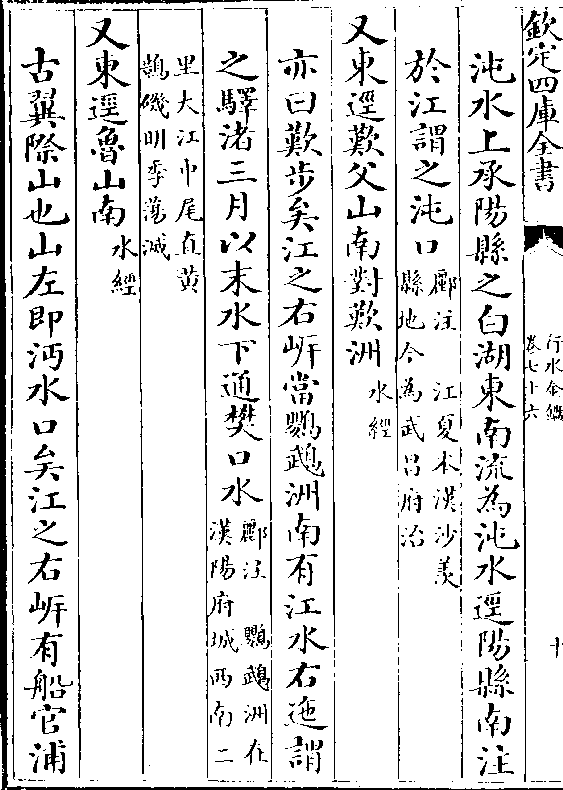 欽定四庫全書
行水金鑑
卷七十六
十
沌水上承陽縣之白湖東南流為沌水逕陽縣南注
於江謂之沌口酈注　江夏本漢沙羨
縣地今為武昌府治
又東逕歎父山南對歎洲水經
亦曰歎步矣江之右岍當鸚鵡洲南有江水右迤謂
之驛渚三月以末水下通樊口水酈注　鸚鵡洲在
漢陽府城西南二
里大江中尾直黄
鵠磯明季蕩滅
又東逕魯山南水經
古翼際山也山左即沔水口矣江之右岍有船官浦